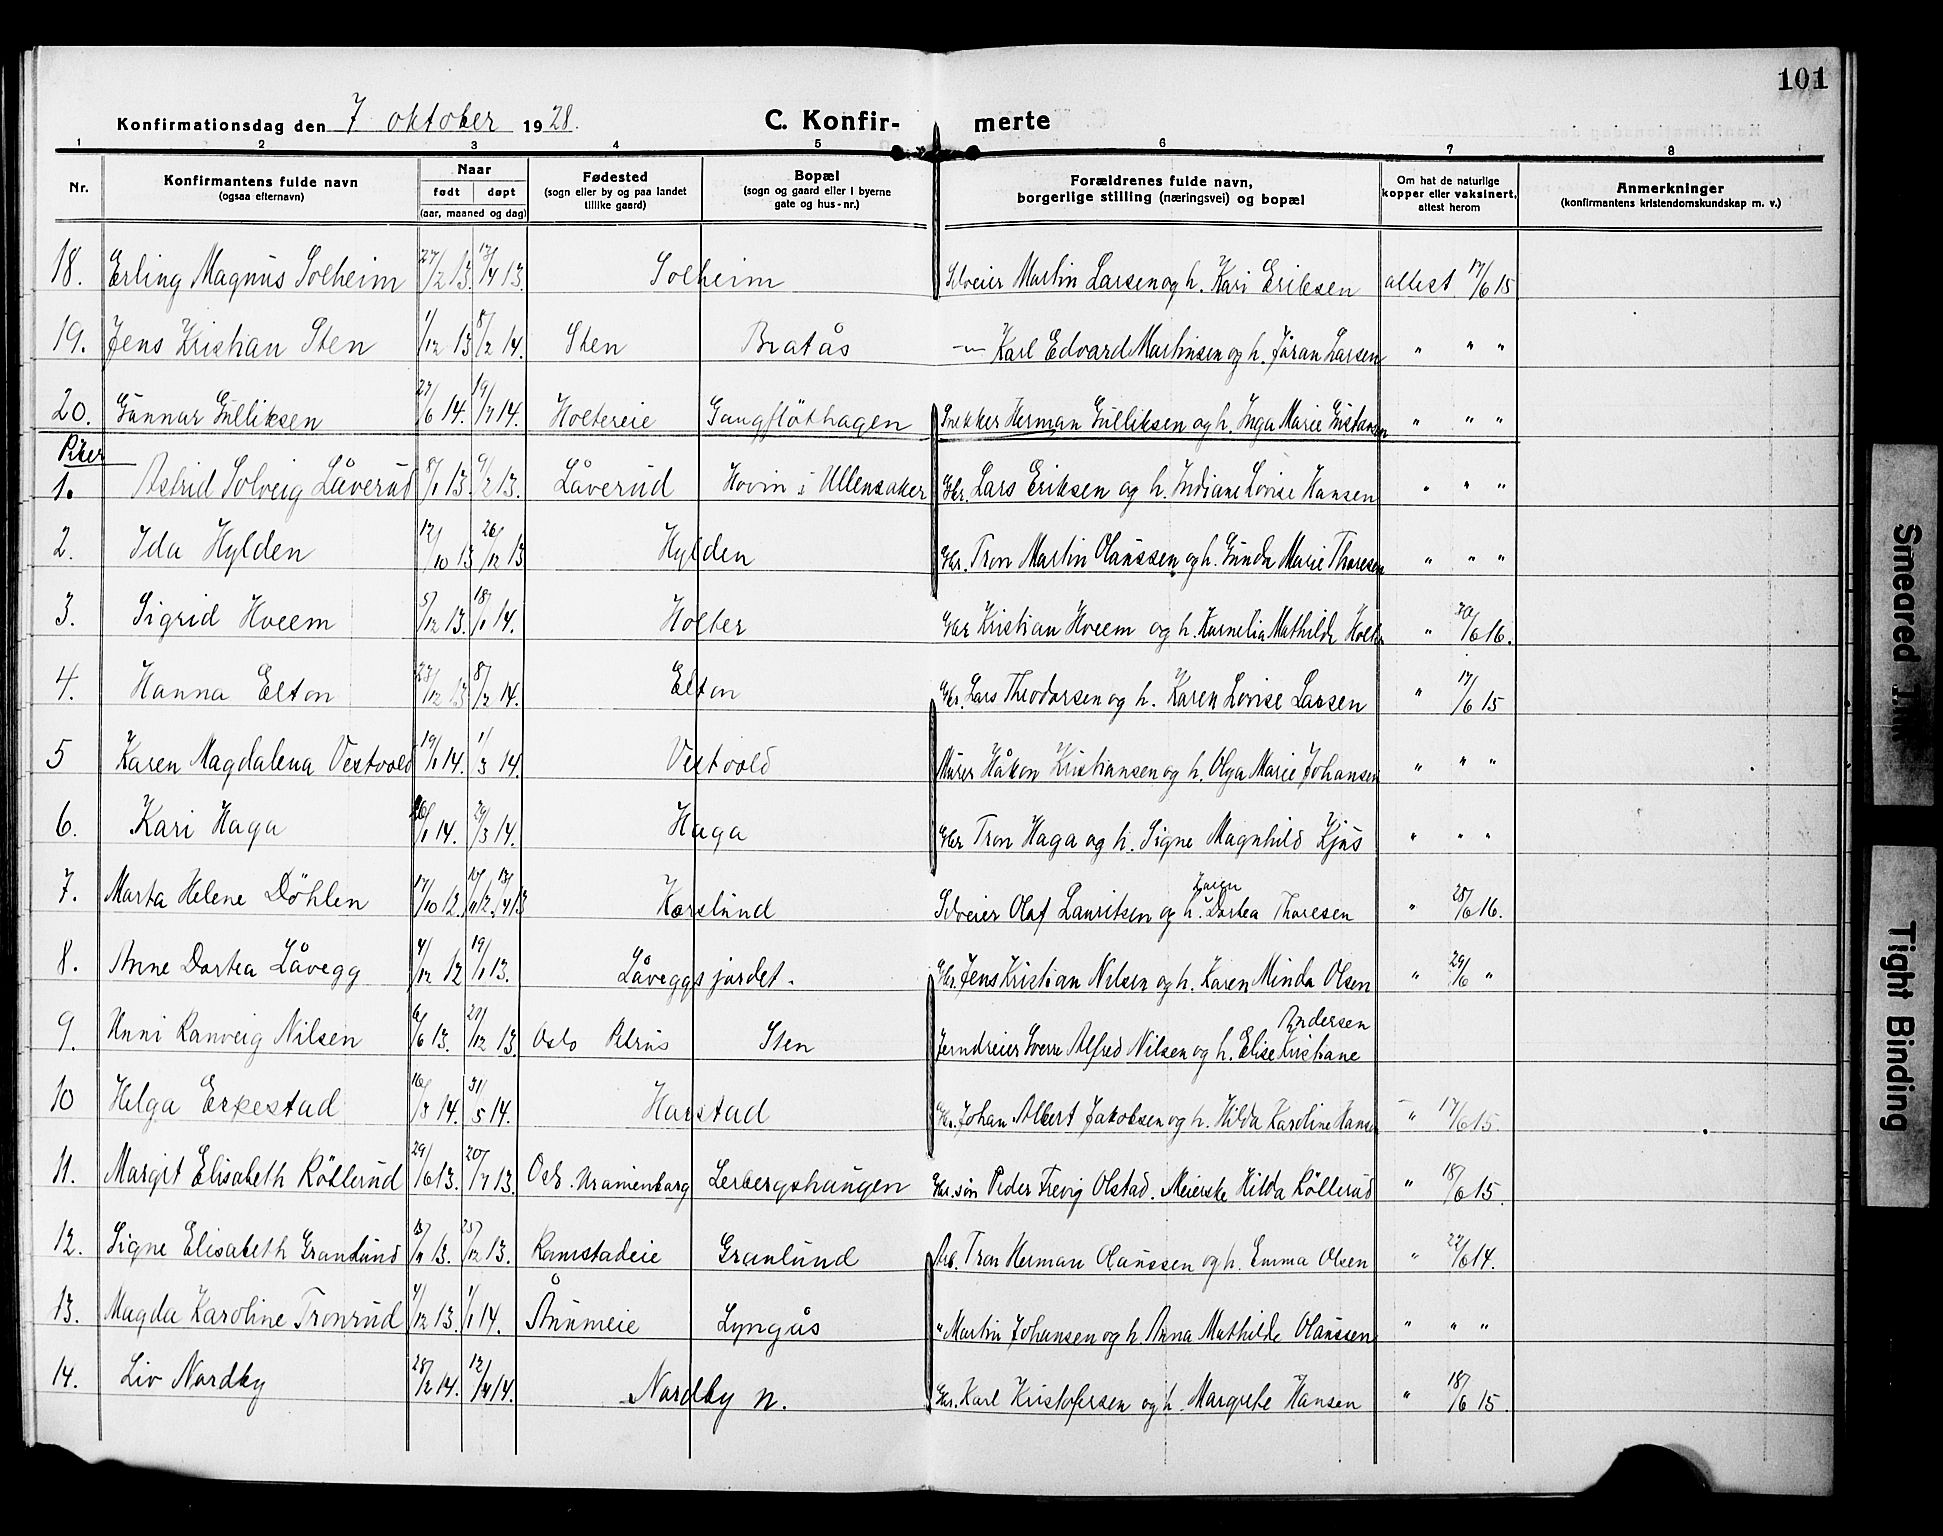 101
Konfirmationsdag den 7 oktober 1928. C. Konfir- merte
1 2 3 4 5 6 7 8
Nr. Konfirmantens fulde navn (ogsaa efternavn) Naar født døpt (aar, maaned og dag) Fødested (sogn eller by og paa landet tillike gaard) Bopæl (sogn og gaard eller i byerne gate og hus-nr.) Forældrenes fulde navn, borgerlige stilling (næringsvei) og bopæl Om hat de naturlige kopper eller vaksinert, attest herom Anmerkninger (konfirmantens kristendomskundskap m. v.)
18. Erling Magnus Solheim 27/2 13. 13/4 13. Solheim Selveier Martin Larsen og h. Kari Eriksen attest 17/6 15
19. Jens Kristian Sten 1/12 13 8/2 14. Sten Bratås — Karl Edvard Martinsen og h. Jøran Larsen " " "
20. Gunnar Gulliksen 27/6 14. 19/7 14. Holtereie Gangfløthagen Snekker Herman Gulliksen og h. Inga Marie Gustavsen " " "
Piker
1. Astrid Solveig Låverud 8/1 13. 9/2 13. Låverud Hovin i Ullensaker Gbr. Lars Eriksen og h. Indiane Lovise Hansen " " "
2. Ida Hylden 12/10 13 26/12 13 Hylden Gbr. Tron Martin Olaussen og h. Gunda Marie Thoresen " " "
3. Sigrid Hveem 5/12 13. 18/1 14. Holter Gbr Kristian Hveem og h. Karnelia Mathilde Holter " 30/6 16.
4. Hanna Elton 23/12 13 8/2 14. Elton Gbr. Lars Theodorsen og h. Karen Lovise Larsen " 17/6 15
5 Karen Magdalena Vestvold 19/1 14. 1/3 14. Vestvold Murer Håkon Kristiansen og h. Olga Marie Johansen " " "
6. Kari Haga 26/1 14. 29/3 14. Haga Gbr Tron Haga og h. Signe Magnhild Kjus " " "
7. Marta Helene Døhlen 17/10 12. 17/11 12. 13/4 13 Karslund Selveier Olaf Lauritsen og h. Karen Dortea Thoresen " 28/6 16.
8. Anne Dortea Låvegg 4/12 12 19/1 13. Låveggsjordet. Gbr. Jens Kristian Nilsen og h. Karen Minda Olsen " 29/6 "
9. Unni Ranveig Nilsen 6/6 13. 27/12 13. Oslo Petrus Sten Jerndreier Sverre Alfred Nilsen og h. Elise Kristiane Andersen
10 Helga Erpestad 16/3 14. 31/5 14. Harstad Gbr. Johan Albert Jakobsen og h. Hilda Karoline Hansen " 17/6 15.
11. Margit Elisabeth Røtterud 29/6 13. 20/7 13. Oslo. Uranienborg Lerbergshaugen Gbr.søn Peder Trevig Olstad. Meierske Hilda Røllerud " 18/6 15.
12. Signe Elisabeth Granlund 13/11 13. 25/12 13. Ramstadeie Granlund Arb. Tron Herman Olaussen og h. Emma Olsen " 22/6 14.
13. Magda Karoline Tronrud 4/12 13. 1/1 14. Ånumeie Lyngås " Martin Johansen og h. Anna Mathilde Olaussen " " "
14. Liv Nordby 28/2 14. 12/4 14. Nordby n. Gbr. Karl Kristofersen og h. Margrete Hansen " 18/6 15.
Smeared Ink
Tight Binding